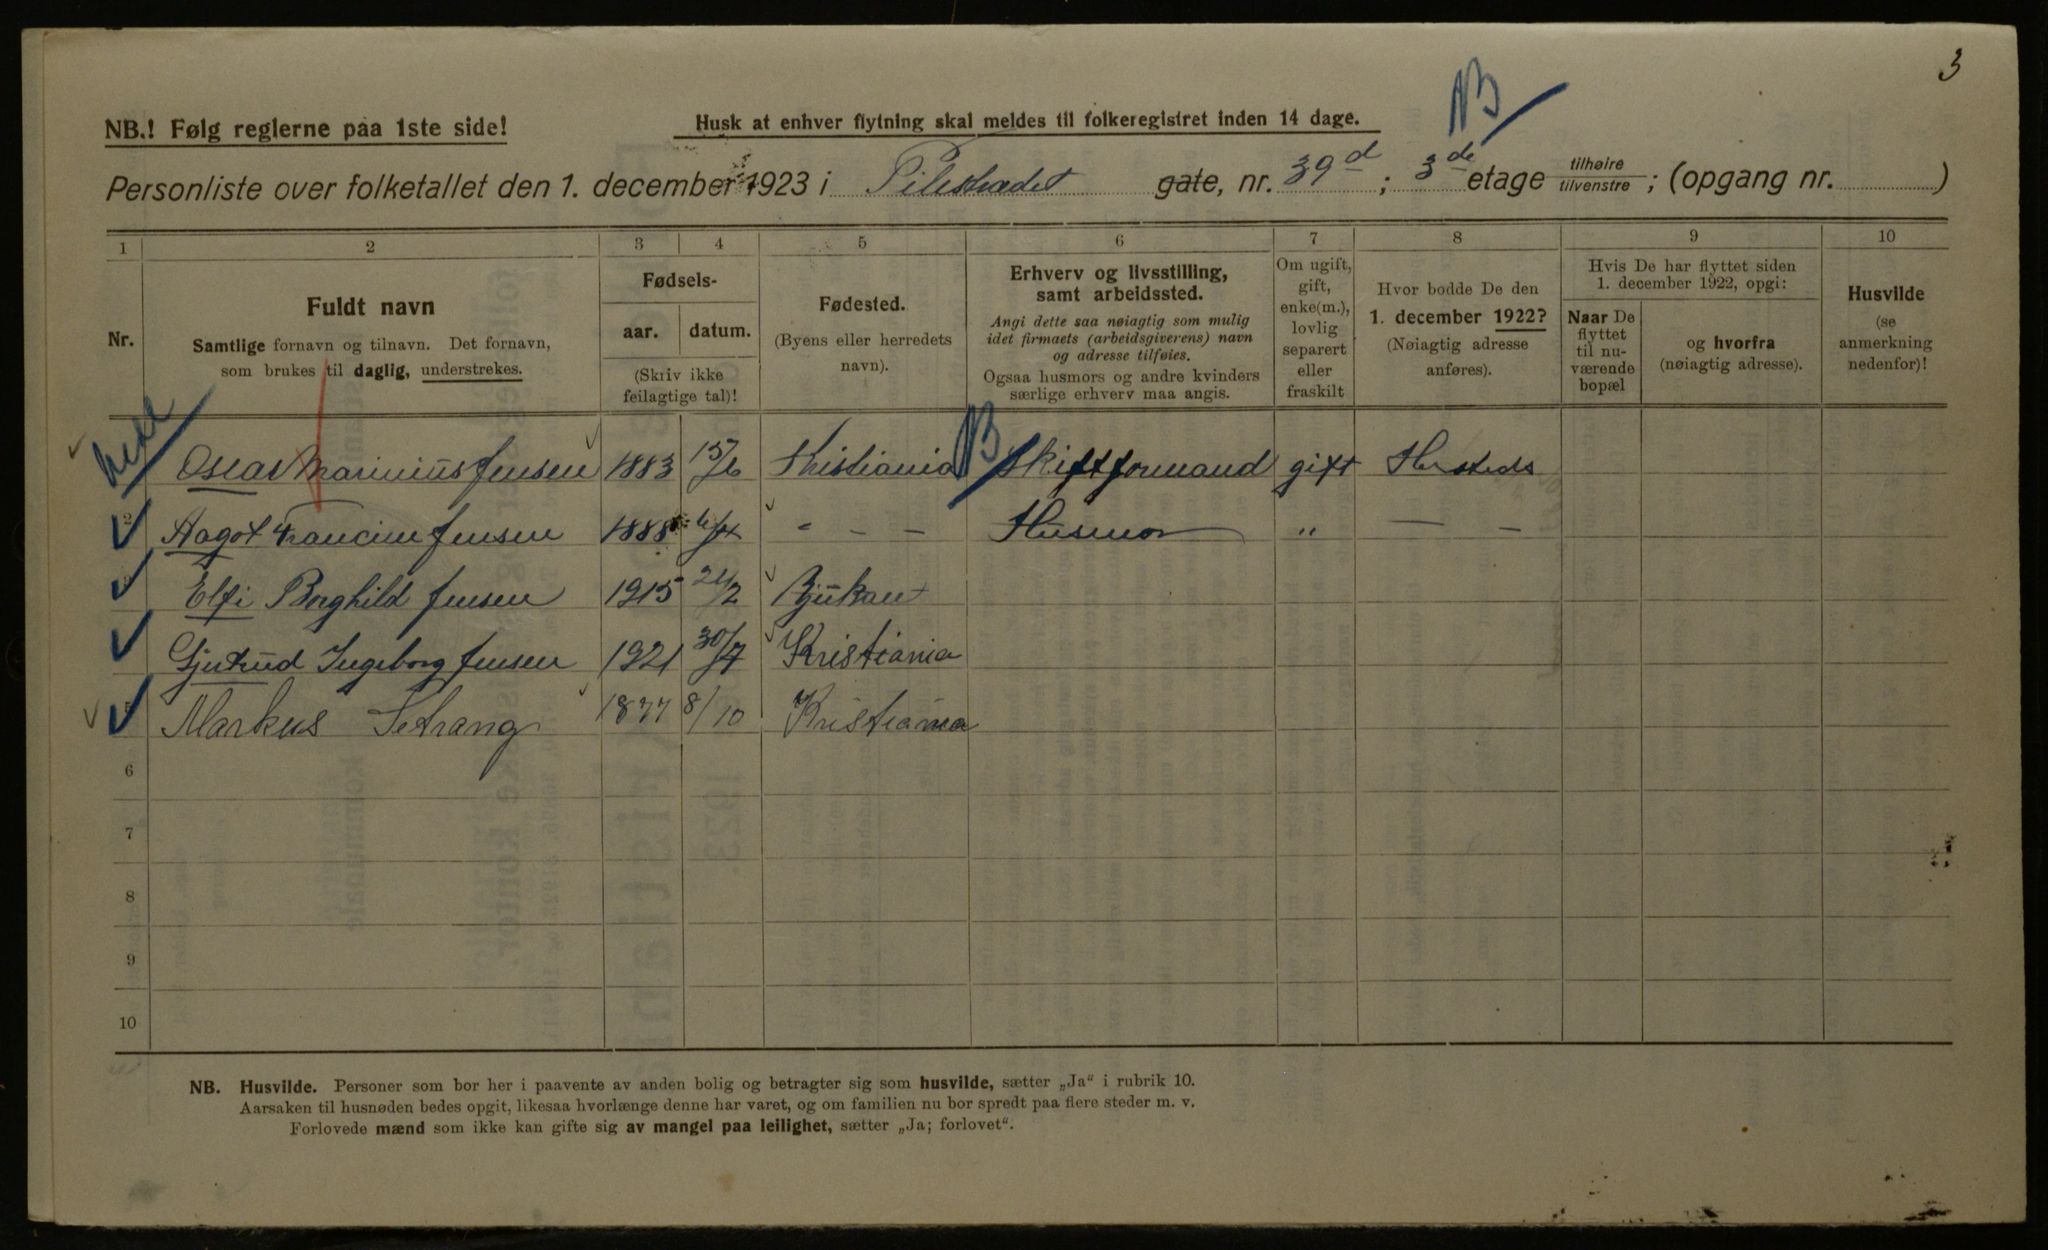 3
NB
NB.! Følg reglerne paa 1ste side!
Husk at enhver flytning skal meldes til folkeregistret inden 14 dage.
Personliste over folketallet den 1. december 1923 i Pilestrædet gate, nr. 39d ; 3de etage tilhøire tilvenstre ; (opgang nr. )
1 2 3 4 5 6 7 8 9 10
Nr.
Fuldt navn
Samtlige fornavn og tilnavn. Det fornavn,
som brukes til daglig, understrekes.
Fødsels-
aar. datum.
(Skriv ikke
feilagtige tal)!
Fødested.
(Byens eller herredets
navn).
Erhverv og livsstilling,
samt arbeidssted.
Angi dette saa nøiagtig som mulig
idet firmaets (arbeidsgiverens) navn
og adresse tilføies.
Ogsaa husmors og andre kvinders
særlige erhverv maa angis.
Om ugift,
gift,
enke(m.),
lovlig
separert
eller
fraskilt
Hvor bodde De den
1. december 1922?
(Nøiagtig adresse
anføres).
Hvis De har flyttet siden
1. december 1922, opgi:
Naar De
flyttet
til nu-
værende
bopæl
og hvorfra
(nøiagtig adresse).
Husvilde
(se
anmerkning
nedenfor)!
Oscar Marinius Jensen 1883 15/6 Kristiania NB Skiftformand gift Hersteds
2 Aagot Francine Jensen 1888 - - - Husmor " — -
Elfi Borghild Jensen 1915 21/2 Rjukan
Gjertrud Ingeborg Jensen 1921 30/7 Kristiania
5 Markus Setrang 1877 8/10 Kristiania
6
7
8
9
10
NB. Husvilde. Personer som bor her i paavente av anden bolig og betragter sig som husvilde, sætter „Ja“ i rubrik 10.
Aarsaken til husnøden bedes opgit, likesaa hvorlænge denne har varet, og om familien nu bor spredt paa flere steder m. v.
Forlovede mænd som ikke kan gifte sig av mangel paa leilighet, sætter „Ja; forlovet“.